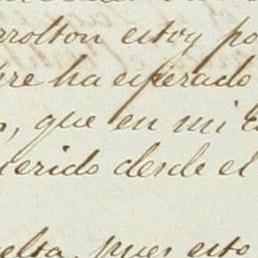 rrolton estoy po
re ha esperado
, que en mi E
uerido desde el
elta, pues esto